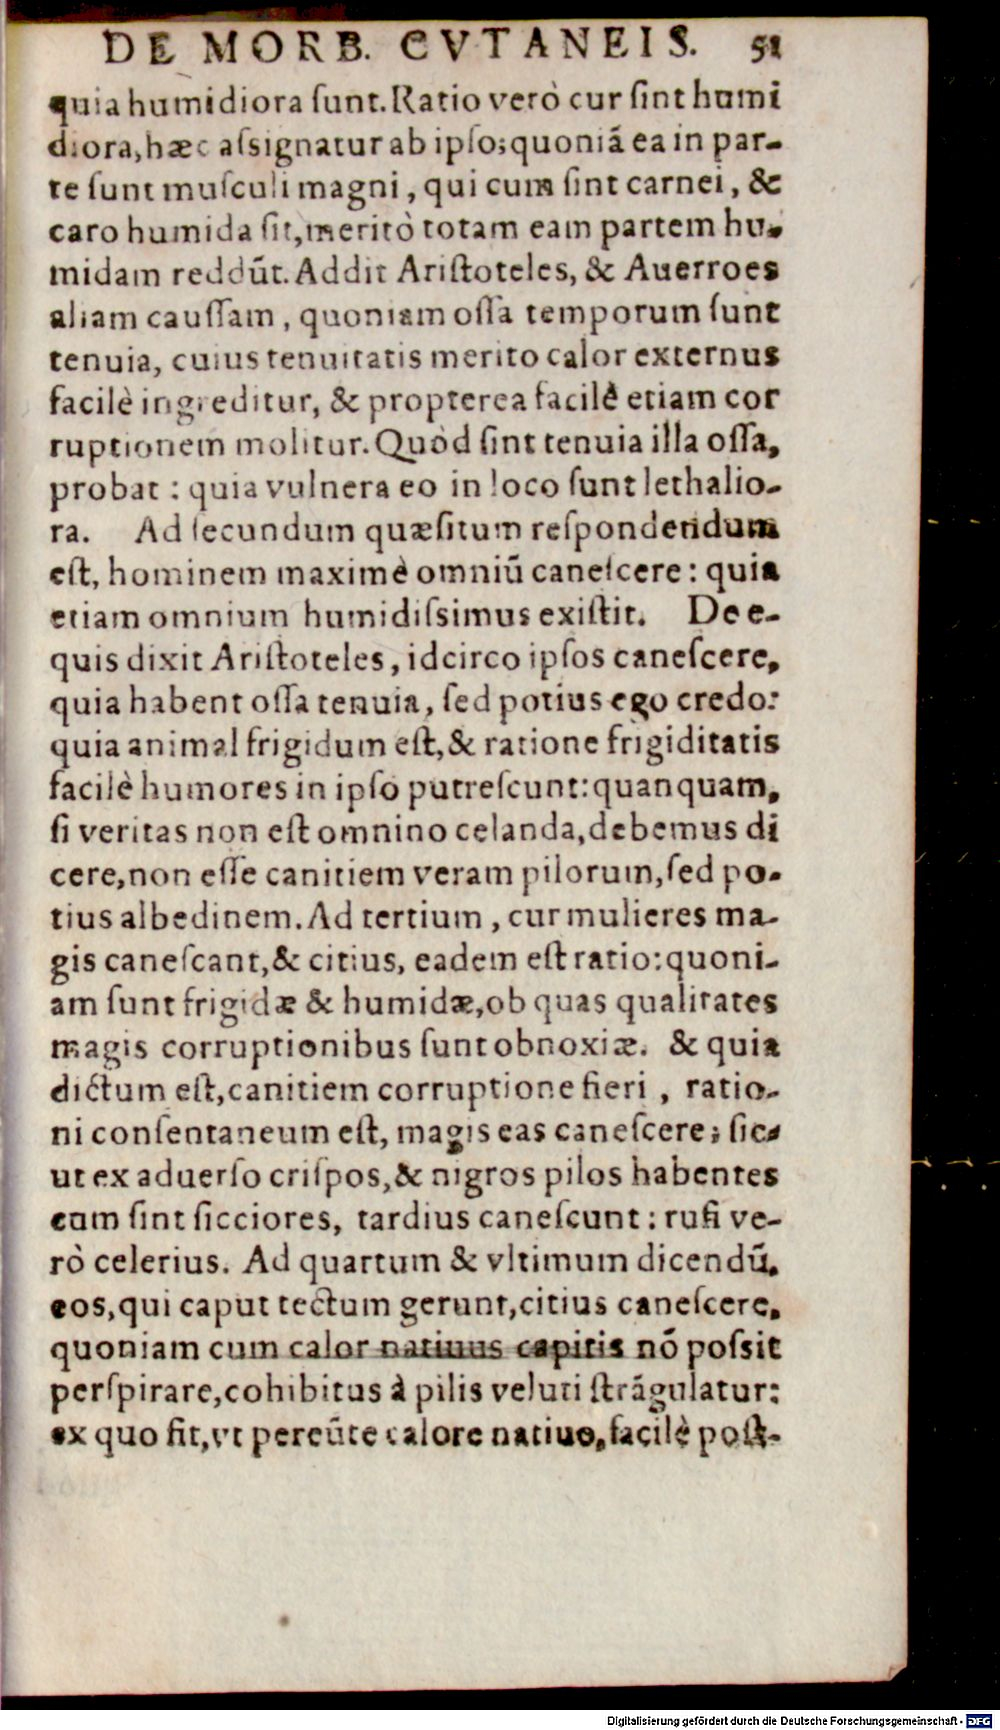 DE MORB. CVTANEIS. 51
quia humidiora ſunt. Ratio verò cur ſint humi
diora, hæc aſsignatur ab ipſo; quoniã ea in par-
te ſunt muſculi magni, qui cum ſint carnei, &
caro humida ſit, meritò totam eam partem hu-
midam reddũt. Addit Ariſtoteles, & Auerroes
aliam cauſſam, quoniam oſſa temporum ſunt
tenuia, cuius tenuitatis merito calor externus
facilè ingreditur, & propterea facilè etiam cor
ruptionem molitur. Quòd ſint tenuia illa oſſa,
probat: quia vulnera eo in loco ſunt lethalio-
ra. Ad ſecundum quæſitum reſpondendum
eſt, hominem maximè omniũ caneſcere: quia
etiam omnium humidiſsimus exiſtit. De e-
quis dixit Ariſtoteles, idcirco ipſos caneſcere,
quia habent oſſa tenuia, ſed potius ego credo:
quia animal frigidum eſt, & ratione frigiditatis
facilè humores in ipſo putreſcunt: quanquam,
ſi veritas non eſt omnino celanda, debemus di
cere, non eſſe canitiem veram pilorum, ſed po-
tius albedinem. Ad tertium, cur mulieres ma-
gis caneſcant, & citius, eadem eſt ratio: quoni-
am ſunt frigidæ & humidæ, ob quas qualitates
magis corruptionibus ſunt obnoxiæ. & quia
dictum eſt, canitiem corruptione fieri, ratio-
ni conſentaneum eſt, magis eas caneſcere; ſic-
ut ex aduerſo criſpos, & nigros pilos habentes
cum ſint ſicciores, tardius caneſcunt: rufi ve-
rò celerius. Ad quartum & vltimum dicendũ,
eos, qui caput tectum gerunt, citius caneſcere,
quoniam cum calor natiuus capitis nõ poſsit
perſpirare, cohibitus à pilis veluti ſtrãgulatur:
ex quo fit, vt pereũte calore natiuo, facilè poſt-
Digitalisierung gefördert durch die Deutsche Forschungsgemeinschaft - DFG